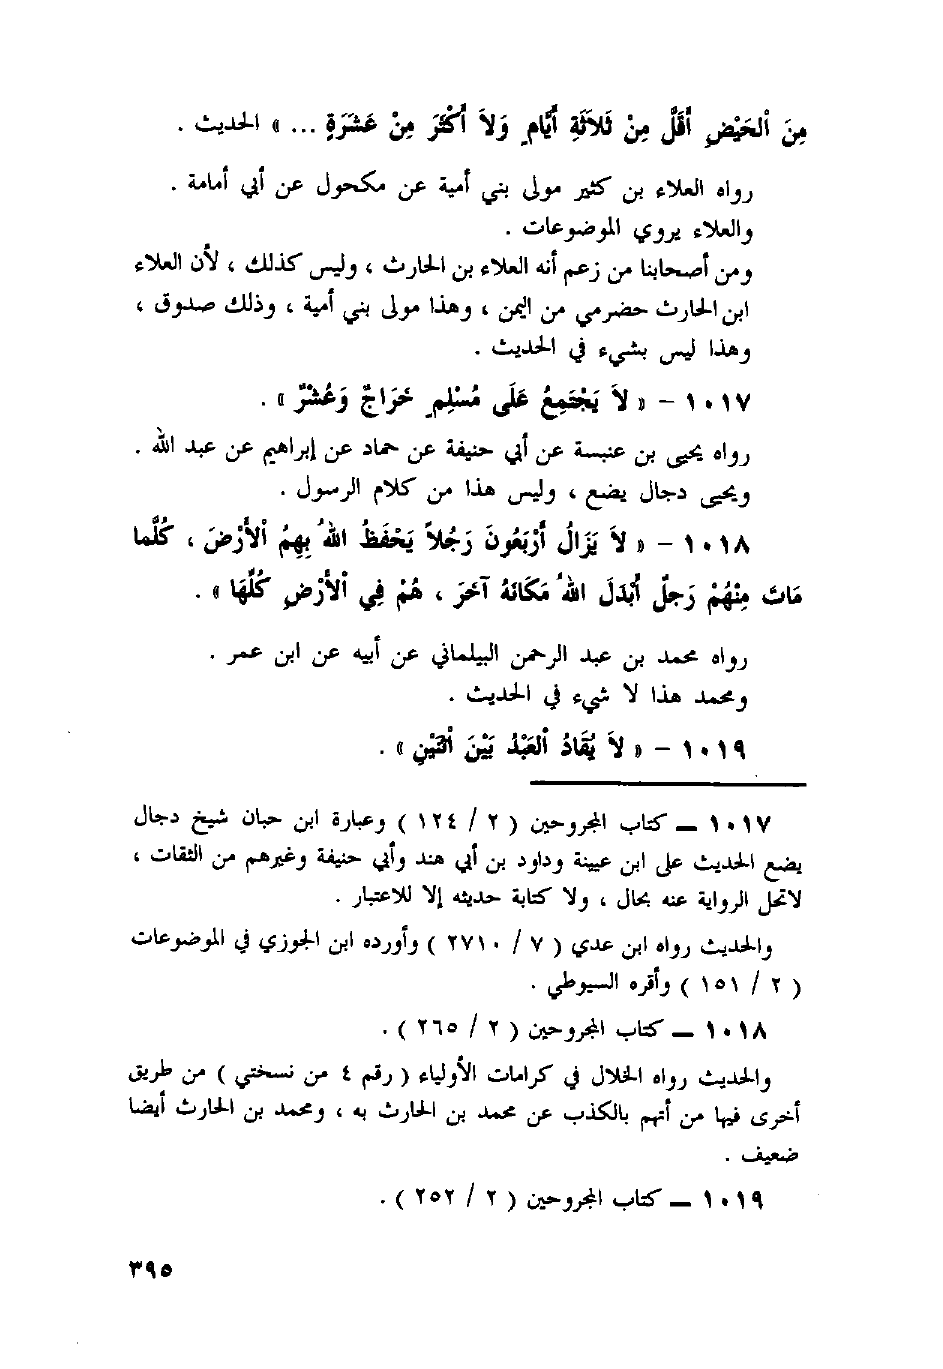 مِنَ ٱلحَيْضِ أَقَلَّ مِنْ ثَلاَثَةِ أَيَّامٍ وَلاَ أَكْثَرَ مِنْ عَشَرَةٍ ... » الحديث .
رواه العلاء بن كثير مولى بني أمية عن مكحول عن أبي أمامة .
والعلاء يروي الموضوعات .
ومن أصحابنا من زعم أنه العلاء بن الحارث ، وليس كذلك ، لأن العلاء
ابن الحارث حضرمي من اليمن ، وهذا مولى بني أمية ، وذلك صدوق ،
وهذا ليس بشيء في الحديث .
١٠١٧ – « لاَ يَجْتَمِعُ عَلَى مُسْلِمٍ خَرَاجٌ وَعُشْرٌ » .
رواه يحيى بن عنبسة عن أبي حنيفة عن حماد عن إبراهيم عن عبد الله .
ويحيى دجال يضع ، وليس هذا من كلام الرسول .
١٠١٨ – « لاَ يَزَالُ أَرْبَعُونَ رَجُلاً يَحْفَظُ اللهُ بِهِمُ ٱلأَرْضَ ، كُلَّما
مَاتَ مِنْهُمْ رَجلٌ أَبْدَلَ اللهُ مَكَانَهُ آخَرَ ، هُمْ فِي ٱلأَرْضِ كُلِّهَا » .
رواه محمد بن عبد الرحمن البيلماني عن أبيه عن ابن عمر .
ومحمد هذا لا شيء في الحديث .
١٠١٩ – « لاَ يُقَادُ ٱلعَبْدُ بَيْنَ ٱثْنَيْنِ » .
١٠١٧ – كتاب المجروحين ( ٢ / ١٢٤ ) وعبارة ابن حبان شيخ دجال
يضع الحديث على ابن عيينة وداود بن أبي هند وأبي حنيفة وغيرهم من الثقات ،
لاتحل الرواية عنه بحال ، ولا كتابة حديثه إلا للاعتبار .
والحديث رواه ابن عدي ( ٧ / ٢٧١٠ ) وأورده ابن الجوزي في الموضوعات
( ٢ / ١٥١ ) وأقره السيوطي .
١٠١٨ – كتاب المجروحين ( ٢ / ٢٦٥ ) .
والحديث رواه الخلال في كرامات الأولياء ( رقم ٤ من نسختي ) من طريق
أخرى فيها من أتهم بالكذب عن محمد بن الحارث به ، ومحمد بن الحارث أيضا
ضعيف .
١٠١٩ – كتاب المجروحين ( ٢ / ٢٥٢ ) .
٣٩٥